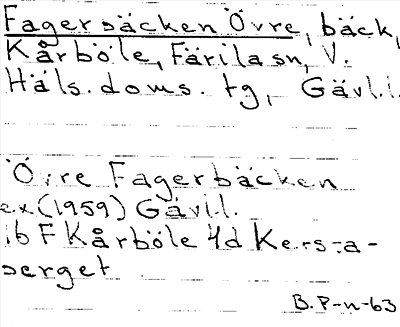 Fagerbäcken Övre, bäck,
Kårböle, Färila sn, V.
Häls. doms. tg, Gävl.l.
Övre Fagerbäcken
ex(1959) Gävl.l.
ib F Kårböle 4d
berget
B.P-n-63